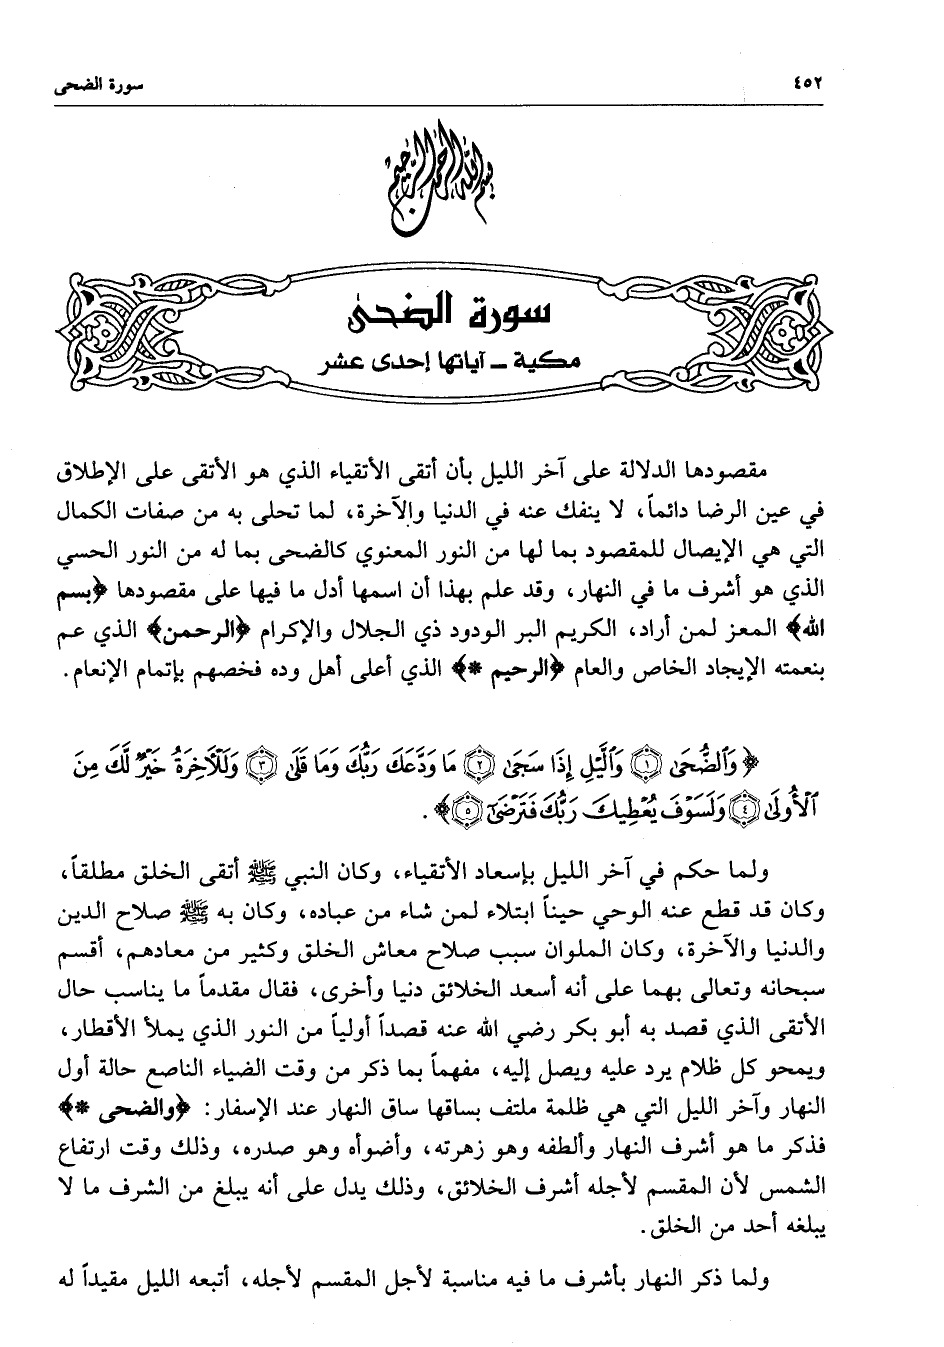 ٤٥٢ سورة الضحى
بسم الله الرحمن الرحيم
سورة الضحى
مكية ــ آياتها إحدى عشر
مقصودها الدلالة على آخر الليل بأن أتقى الأتقياء الذي هو الأتقى على الإطلاق
في عين الرضا دائماً، لا ينفك عنه في الدنيا والآخرة، لما تحلى به من صفات الكمال
التي هي الإيصال للمقصود بما لها من النور المعنوي كالضحى بما له من النور الحسي
الذي هو أشرف ما في النهار، وقد علم بهذا أن اسمها أدل ما فيها على مقصودها ﴿بسم
الله﴾ المعز لمن أراد، الكريم البر الودود ذي الجلال والإكرام ﴿الرحمن﴾ الذي عم
بنعمته الإيجاد الخاص والعام ﴿الرحيم *﴾ الذي أعلى أهل وده فخصهم بإتمام الإنعام.
﴿وَٱلضُّحَىٰ ١ وَٱلَّيْلِ إِذَا سَجَىٰ ٢ مَا وَدَّعَكَ رَبُّكَ وَمَا قَلَىٰ ٣ وَلَلْآخِرَةُ خَيْرٌ لَّكَ مِنَ
ٱلْأُولَىٰ ٤ وَلَسَوْفَ يُعْطِيكَ رَبُّكَ فَتَرْضَىٰٓ ٥﴾.
ولما حكم في آخر الليل بإسعاد الأتقياء، وكان النبي ﷺ أتقى الخلق مطلقاً،
وكان قد قطع عنه الوحي حيناً ابتلاء لمن شاء من عباده، وكان به ﷺ صلاح الدين
والدنيا والآخرة، وكان الملوان سبب صلاح معاش الخلق وكثير من معادهم، أقسم
سبحانه وتعالى بهما على أنه أسعد الخلائق دنيا وأخرى، فقال مقدماً ما يناسب حال
الأتقى الذي قصد به أبو بكر رضي الله عنه قصداً أولياً من النور الذي يملأ الأقطار،
ويمحو كل ظلام يرد عليه ويصل إليه، مفهماً بما ذكر من وقت الضياء الناصع حالة أول
النهار وآخر الليل التي هي ظلمة ملتف بساقها ساق النهار عند الإسفار: ﴿والضحى *﴾
فذكر ما هو أشرف النهار وألطفه وهو زهرته، وأضوأه وهو صدره، وذلك وقت ارتفاع
الشمس لأن المقسم لأجله أشرف الخلائق، وذلك يدل على أنه يبلغ من الشرف ما لا
يبلغه أحد من الخلق.
ولما ذكر النهار بأشرف ما فيه مناسبة لأجل المقسم لأجله، أتبعه الليل مقيداً له